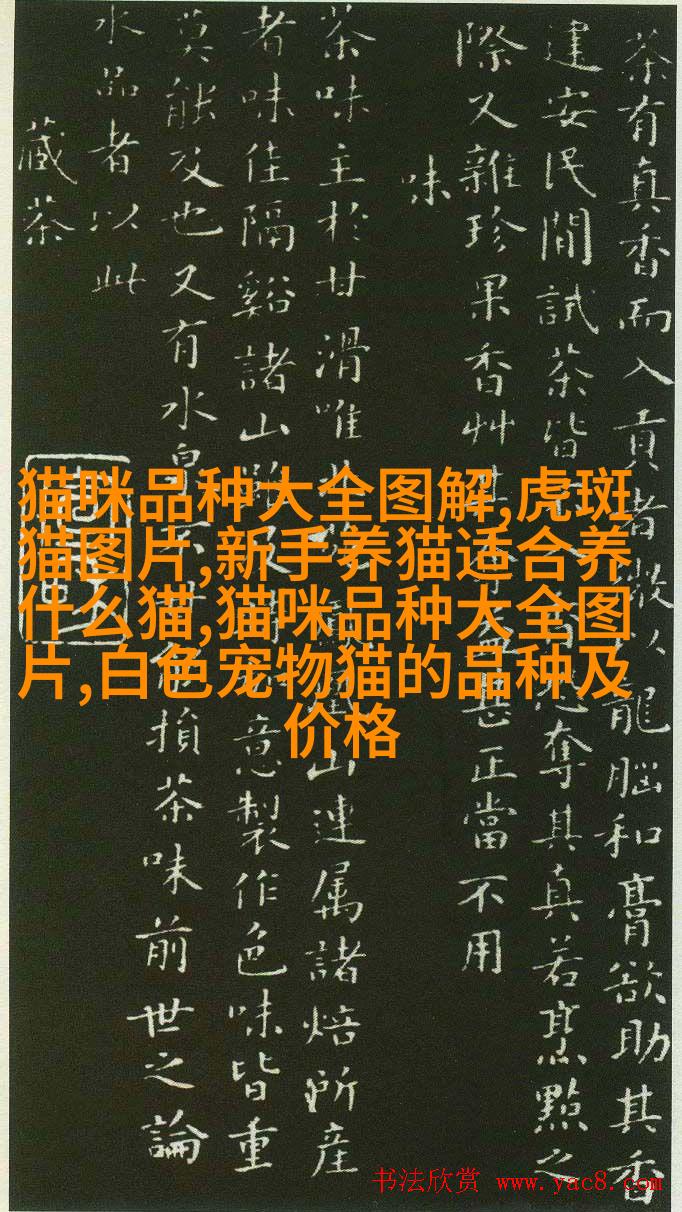 茶有真香而入貢者微以龍腦和膏欲助其香
建安民間試茶皆恐奪其真若烹點之
際又雜珍果香艸其甚正當不用
味
茶味主於甘滑唯山連属諸焙所産
者味佳隔谿諸山意製作色味皆重
莫能及也又有水泉損茶味前世之論
水品者以此
藏茶
猫咪品种大全图解,虎斑
猫图片,新手养猫适合养
什么猫,猫咪品种大全图
片,白色宠物猫的品种及
价格
书法欣赏 www.yac8.com